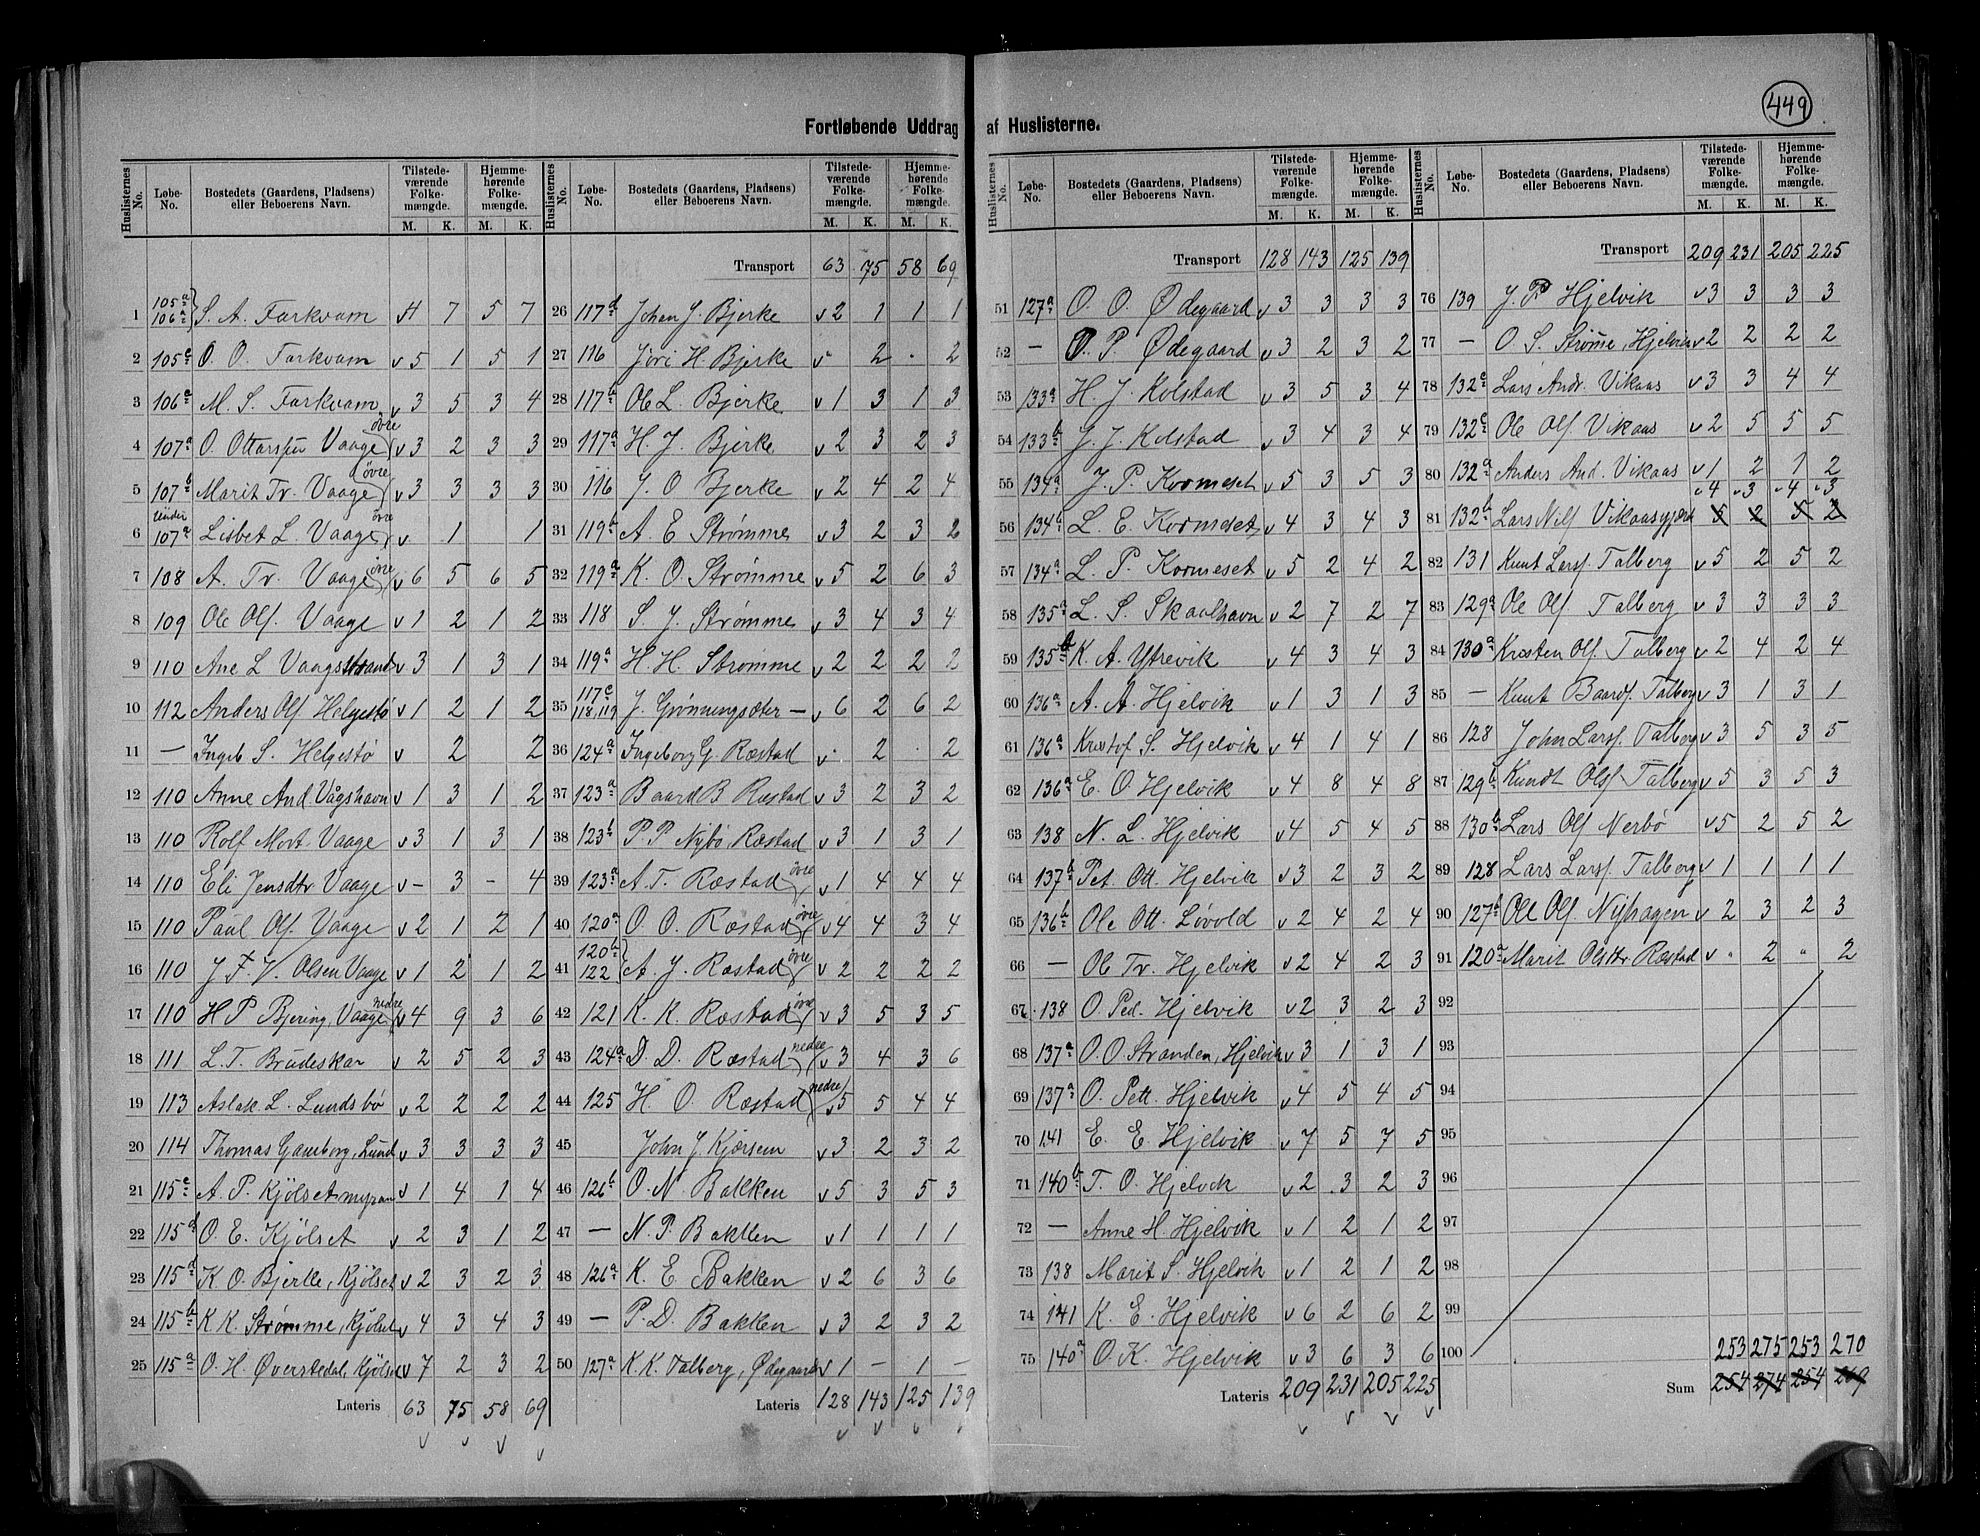 449
Fortløbende Uddrag af Huslisterne.
Huslisternes No. Løbe-No. Bostedets (Gaardens, Pladsens) eller Beboerens Navn. Tilstedeværende Folkemængde. M. K. Hjemmehørende Folkemængde. M. K.
1 105a 106a } S. A. Farkvam 4 7 5 7
2 105c O. O. Farkvam v 5 1 5 1
3 106a M. S. Farkvam v 3 5 3 4
4 107a O. Ottarsen Vaage øvre v 3 2 3 3
5 107b Marit Tr. Vaage øvre v 3 3 3 3
6 under 107a Lisbet L. Vaage øvre v 1 1
7 108 A. Tr. Vaage øvre v 6 5 6 5
8 109 Ole Ols. Vaage v 1 2 1 2
9 110 Ane L Vaagstrand v 3 1 3 1
10 112 Anders Ols Helgestø v 1 2 1 2
11 — Ingeb S. Helgestø v 2 2
12 110 Anne And Vågshavn v 1 3 1 2
13 110 Rolf Mort. Vaage v 3 1 3 1
14 110 Eli Jensdtr Vaage v - 3 - 4
15 110 Paul Ols Vaage v 2 1 2 1
16 110 J F V. Olsen Vaage v 1 2 1 2
17 110 H P Bjering, Vaage nedre v 4 9 3 6
18 111 L. T. Brudeskar v 2 5 2 3
19 113 Aslak L. Lundsbø v 2 2 2 2
20 114 Thomas Gamborg, Lund v 3 3 3 3
21 115e A. P. Kjølsetsmyran v 1 4 1 4
22 115d O. E. Kjølset v 2 3 1 2
23 115d K O. Bjerke, Kjølset v 2 3 2 3
24 115b K K. Strømme, Kjølset v 4 3 4 3
25 115a O. H. Øverstedal, Kjølset v 7 2 3 2
Lateris 63 75 58 69
Transport 63 75 58 69
26 117d Johan J. Bjerke v 2 1 1 1
27 116 Jøri H Bjerke v - 2 . 2
28 117b Ole L. Bjerke v 1 3 1 3
29 117a H. J. Bjerke v 2 3 2 3
30 116 J. O Bjerke v 2 4 2 4
31 119b A. E Strømme v 3 2 3 2
32 119a K. O. Strømme v 5 2 6 3
33 118 S. J. Strømme v 3 4 3 4
34 119a H. H. Strømme v 2 2 2 2
35 117c 118,119 J. Grønningsæter — v 6 2 6 2
36 124a Ingeborg G. Ræstad v . 2 . 2
37 123a Baard B Ræstad v 3 2 3 2
38 123b P P Nybø, Ræstad v 3 1 3 1
39 123a A. T. Ræstad øvre v 1 4 4 4
40 120a O. O. Ræstad øvre v 4 4 3 4
41 120b 122 } A. J. Ræstad øvre v 2 2 2 2
42 121 K. K. Ræstad øvre v 3 5 3 5
43 124a D. D. Ræstad nedre v 3 4 3 6
44 125 H. O. Ræstad nedre v 5 5 4 4
45 John J Kjørsem v 3 2 3 2
46 126b O. N. Bakken v 5 3 5 3
47 — N. P. Bakken v 1 1 1 1
48 126a K. E. Bakken v 2 6 3 6
49 — P. D. Bakken v 3 2 3 2
50 127a K. K. Talberg, Ødegaard v 1 — 1 —
Lateris 128 143 125 139
Huslisternes No. Løbe-No. Bostedets (Gaardens, Pladsens) eller Beboerens Navn. Tilstedeværende Folkemængde. M. K. Hjemmehørende Folkemængde. M. K.
Transport 128 143 125 139
51 127a O. O. Ødegaard v 3 3 3 3
52 — O. P. Ødegaard v 3 2 3 2
53 133a H. J. Kolstad v 3 5 3 4
54 133b J. J. Kolstad v 3 4 3 4
55 134a J. P. Kormeset v 5 3 5 3
56 134b L. E. Kormeset v 4 3 4 3
57 134a L. P. Kormeset v 5 2 4 2
58 135a L. S. Skaalhavn v 2 7 2 7
59 135b K. A. Ytrevik v 4 3 4 3
60 136a A. A. Hjelvik v 1 3 1 3
61 136a Kristof S. Hjelvik v 4 1 4 1
62 136a E. O. Hjelvik v 4 8 4 8
63 138 N. L. Hjelvik v 4 5 4 5
64 137b Pet. Ott. Hjelvik v 3 2 3 2
65 136b Ole Ott. Løvold v 2 4 2 4
66 — Ole Tr. Hjelvik v 2 4 2 3
67 138 O. Ped. Hjelvik v 2 3 2 3
68 137a O. O. Stranden, Hjelvik v 3 1 3 1
69 137a O. Pett. Hjelvik v 4 5 4 5
70 141 E. E. Hjelvik v 7 5 7 5
71 140b T. O. Hjelvik v 2 3 2 3
72 — Anne H. Hjelvik v 1 2 1 2
73 138 Marit S. Hjelvik v 1 2 1 2
74 141 K. E. Hjelvik v 6 2 6 2
75 140a O. K. Hjelvik v 3 6 3 6
Lateris 209 231 205 225
Transport 209 231 205 225
76 139 J. P. Hjelvik v 3 3 3 3
77 — O. S. Strømme, Hjelvik v 2 2 2 2
78 132c Lars Andr. Vikaas v 3 3 4 4
79 132c Ole Ols Vikaas v 2 5 5 5
80 132a Anders And. Vikaas v 1 2 1 2
v 4 v 3 v 4 v 3
81 132b Lars Nils Vikaasgjære 5 2 5 2
82 131 Knut Lars. Talberg v 5 2 5 2
83 129a Ole Ols. Talberg v 3 3 3 3
84 130a Kristen Ols. Talberg v 2 4 2 4
85 — Knut Baards. Talberg v 3 1 3 1
86 128 John Lars. Talberg v 3 5 3 5
87 129b Kundt Ols Talberg v 5 3 5 3
88 130b Lars Ols Nerbø v 5 2 5 2
89 128 Lars Lars. Talberg v 1 1 1 1
90 127b Ole Ols. Nyhagen v 2 3 2 3
91 120a Marit Olsdtr Ræstad v " 2 " 2
92
93
94
95
96
97
98
99
100 253 275 253 270
Sum 254 274 254 269